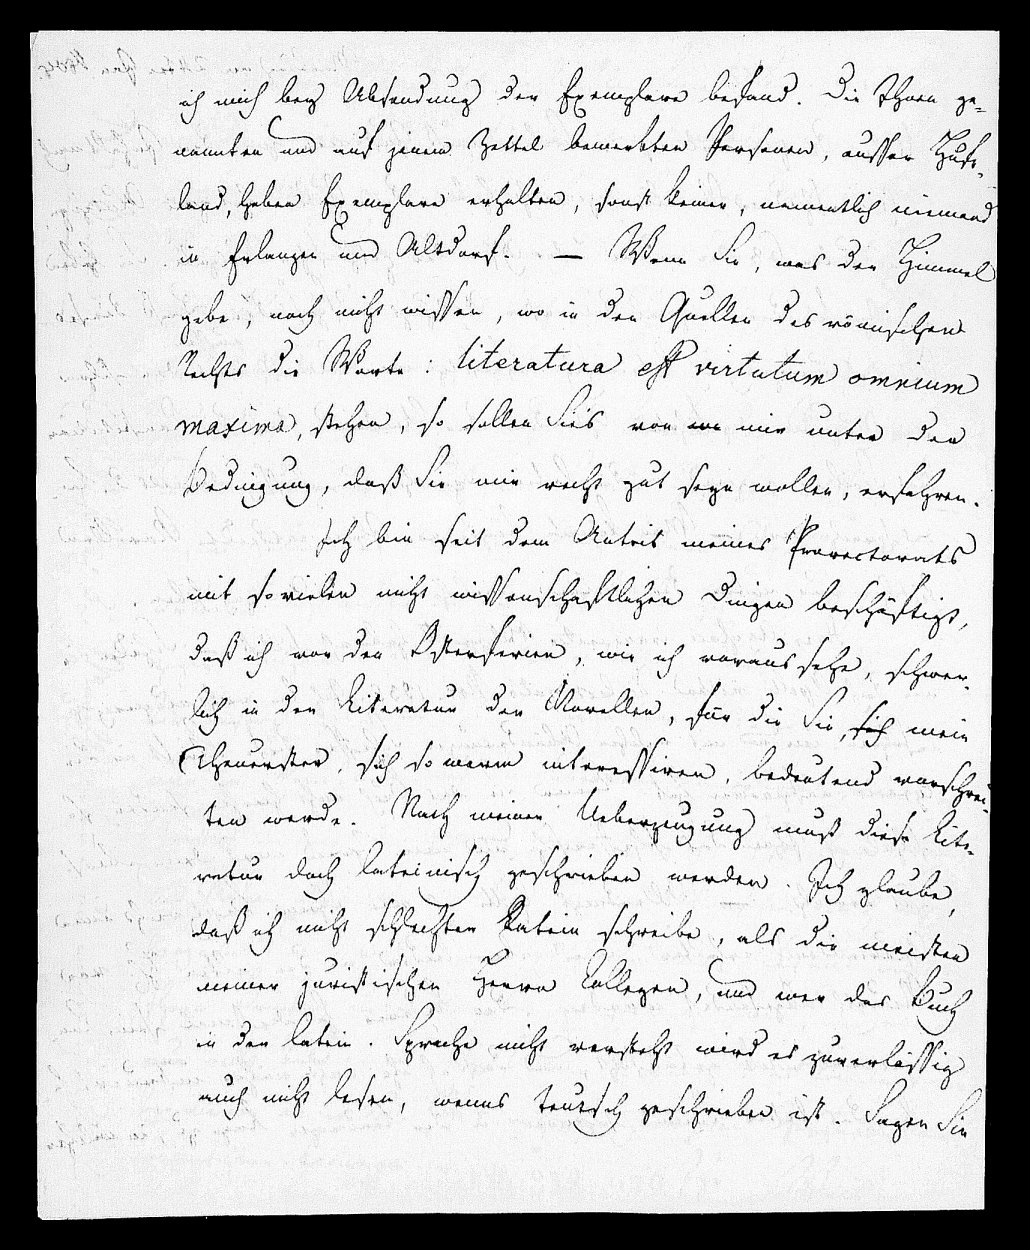 ich mich bey Absendung der Exemplare befand. Die Ihnen ge-
nannten und auf jenem Zettel bemerkten Personen, ausser Hufe-
land, haben Exemplare erhalten, sonst keiner, namentlich niemand
in Erlangen und Altdorf. — Wenn Sie, was der Himmel
gebe, noch nicht wissen, wo in den Quellen des römischen
Rechts die Worte: literatura est virtutum omnium
maxima, stehen, so sollen Sie's von mir unter der
Bedingung, daß Sie mir recht gut seyn wollen, erfahren.
Ich bin seit dem Antrit meines Prorectorats
mit so vielen nicht wissenschaftlichen Dingen beschäftigt,
daß ich vor den Osterferien, wie ich voraus sehe, schwer-
lich in der Literatur der Novellen, für die Sie, mein
Theuerster, sich so warm interessiren, bedeutend vorschrei-
ten werde. Nach meiner Ueberzeugung muß diese Lite-
ratur doch lateinisch geschrieben werden. Ich glaube,
daß ich nicht schlechter Latein schreibe, als die meisten
meiner juristischen Herrn Collegen, und wer das Buch
in der latein. Sprache nicht versteht wird es zuverlässig
auch nicht lesen, wenns teutsch geschrieben ist. Sagen Sie